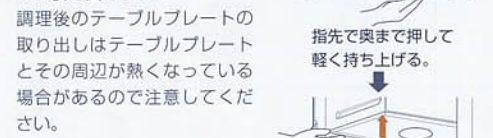 調理後のテーブルプレートの
取り出しはテーブルプレート
とその周辺が熱くなっている
場合があるので注意してくだ
さい。
指先で奥まで押して
軽く持ち上げる。